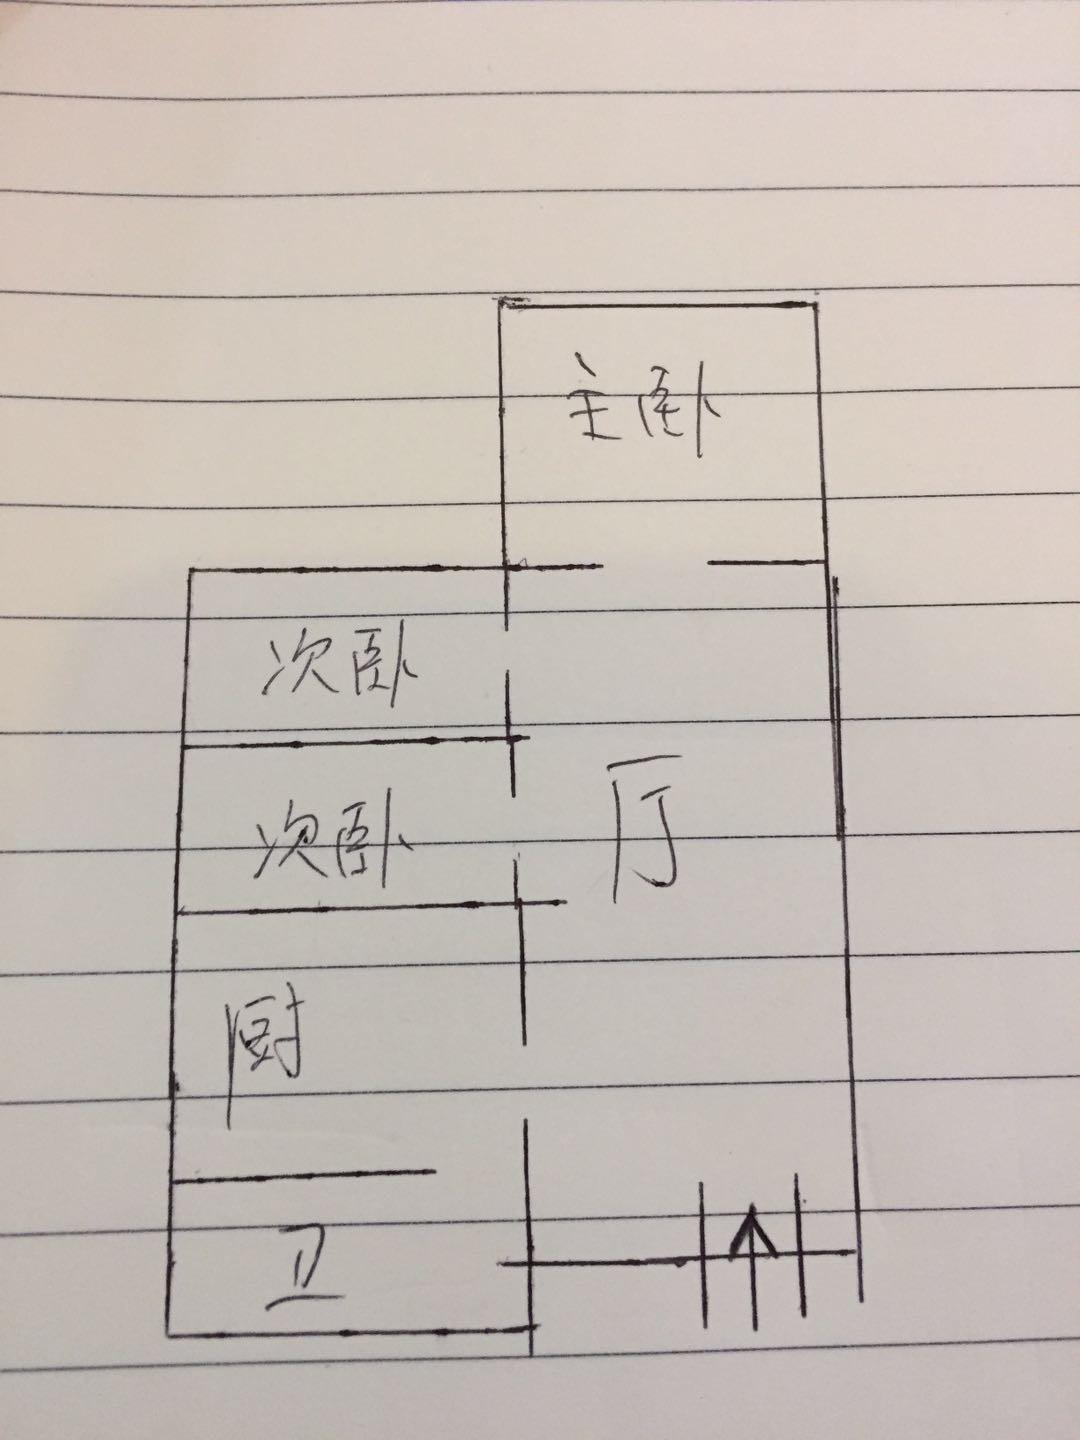 主卧
次卧
次卧
厅
厨
卫